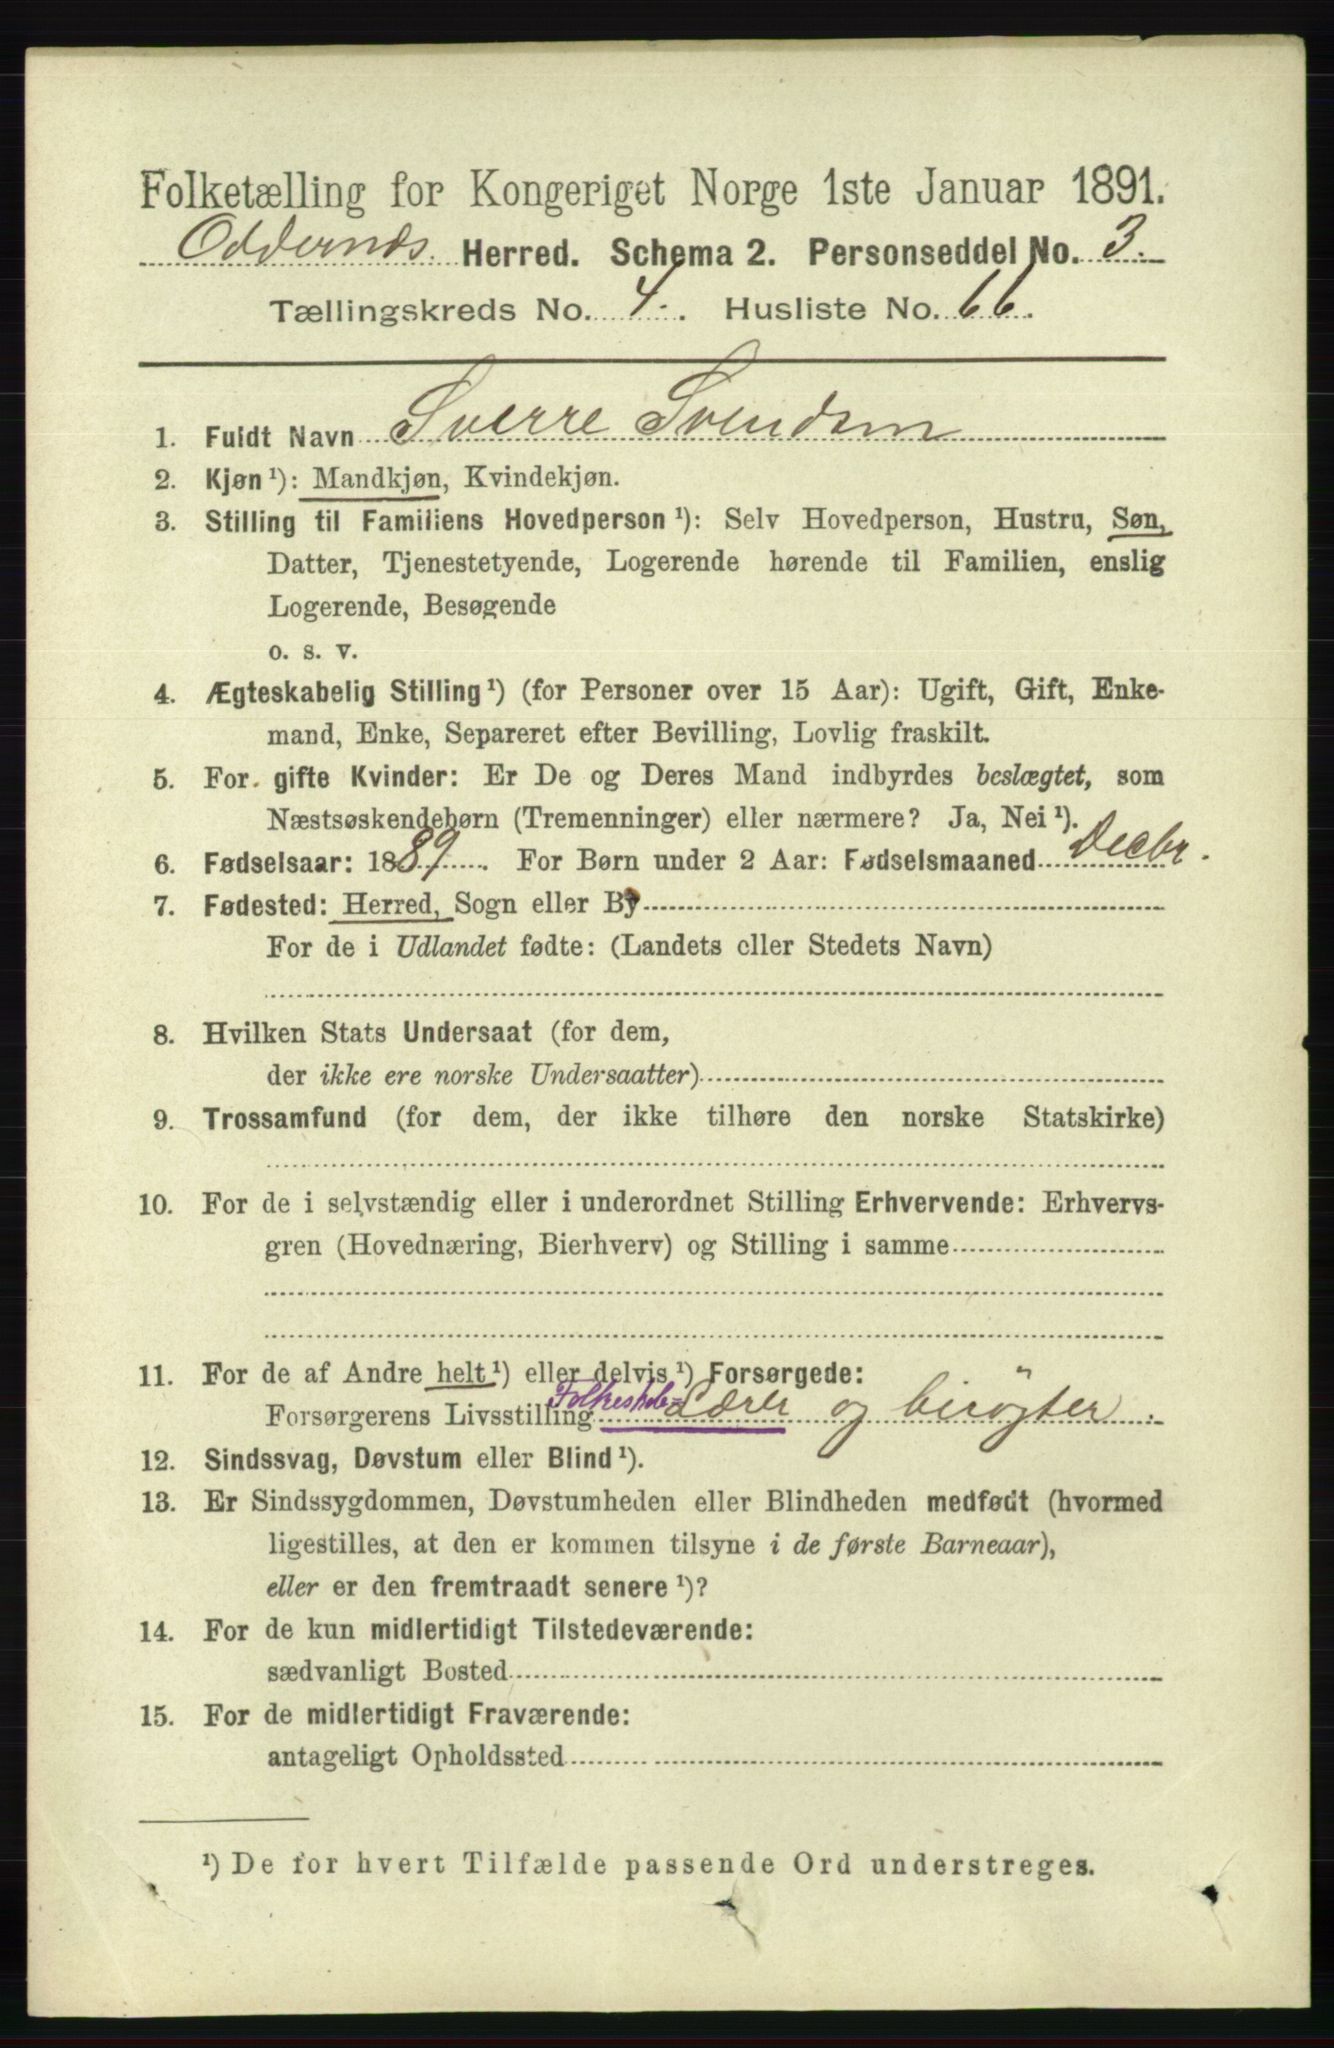 Folketælling for Kongeriget Norge 1ste Januar 1891.
Oddernæs. Herred. Schema 2. Personseddel No. 3.
Tællingskreds No. 4. Husliste No. 66.
1. Fuldt Navn Sverre Svendsen
2. Kjøn¹): Mandkjøn, Kvindekjøn.
3. Stilling til Familiens Hovedperson¹): Selv Hovedperson, Hustru, Søn,
Datter, Tjenestetyende, Logerende hørende til Familien, enslig
Logerende, Besøgende
o. s. v.
4. Ægteskabelig Stilling¹) (for Personer over 15 Aar): Ugift, Gift, Enke-
mand, Enke, Separeret efter Bevilling, Lovlig fraskilt.
5. For gifte Kvinder: Er De og Deres Mand indbyrdes beslægtet, som
Næstsøskendebørn (Tremenninger) eller nærmere? Ja, Nei¹).
6. Fødselsaar: 1889. For Børn under 2 Aar: Fødselsmaaned Decbr.
7. Fødested: Herred, Sogn eller By
For de i Udlandet fødte: (Landets eller Stedets Navn)
8. Hvilken Stats Undersaat (for dem,
der ikke ere norske Undersaatter)
9. Trossamfund (for dem, der ikke tilhøre den norske Statskirke)
10. For de i selvstændig eller i underordnet Stilling Erhvervende: Erhvervs-
gren (Hovednæring, Bierhverv) og Stilling i samme
11. For de af Andre helt¹) eller delvis¹) Forsørgede:
Forsørgerens Livsstilling Folkeskole- Lærer og birøgter.
12. Sindssvag, Døvstum eller Blind¹).
13. Er Sindssygdommen, Døvstumheden eller Blindheden medfødt (hvormed
ligestilles, at den er kommen tilsyne i de første Barneaar),
eller er den fremtraadt senere¹)?
14. For de kun midlertidigt Tilstedeværende:
sædvanligt Bosted
15. For de midlertidigt Fraværende:
antageligt Opholdssted
¹) De for hvert Tilfælde passende Ord understreges.